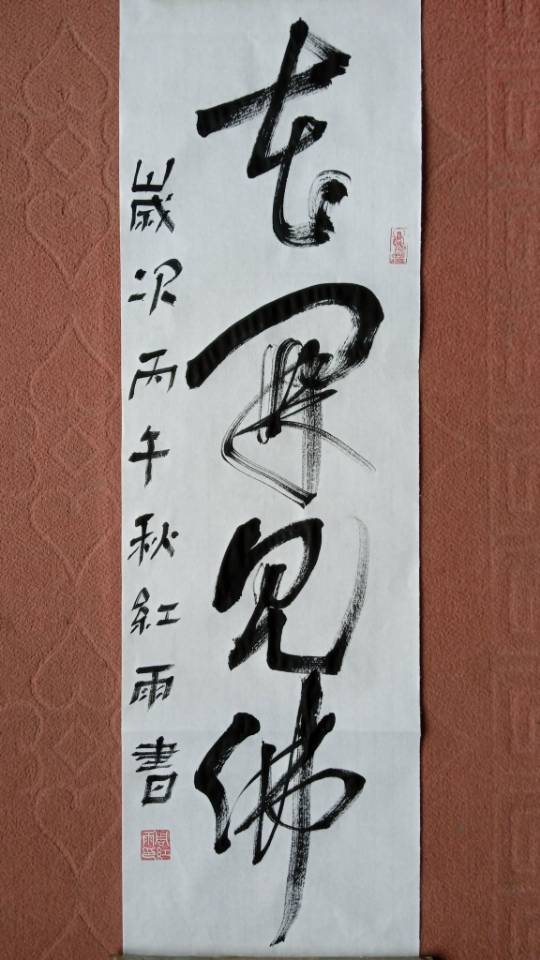 花開見佛
歲次丙午秋紅雨書